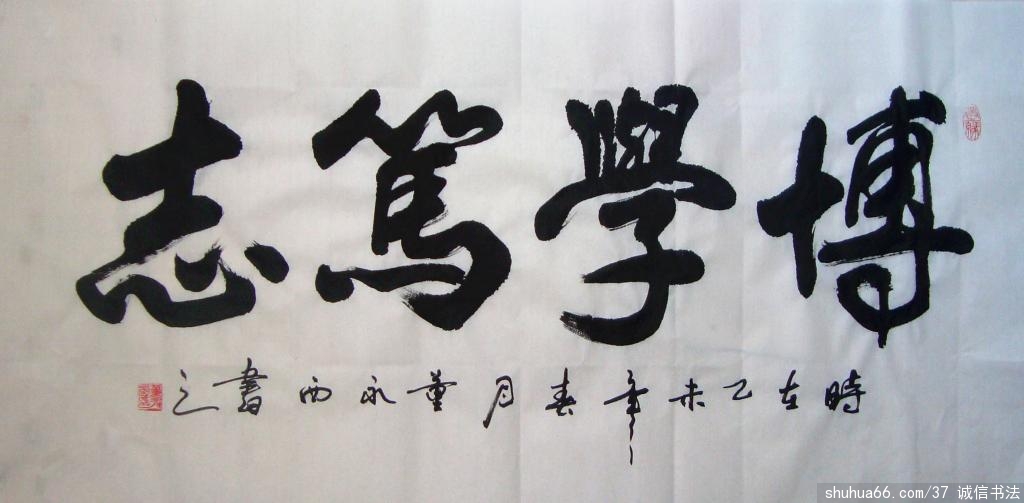 博學篤志
時在乙未年春月董永西書之
shuhua66.com/37 诚信书法